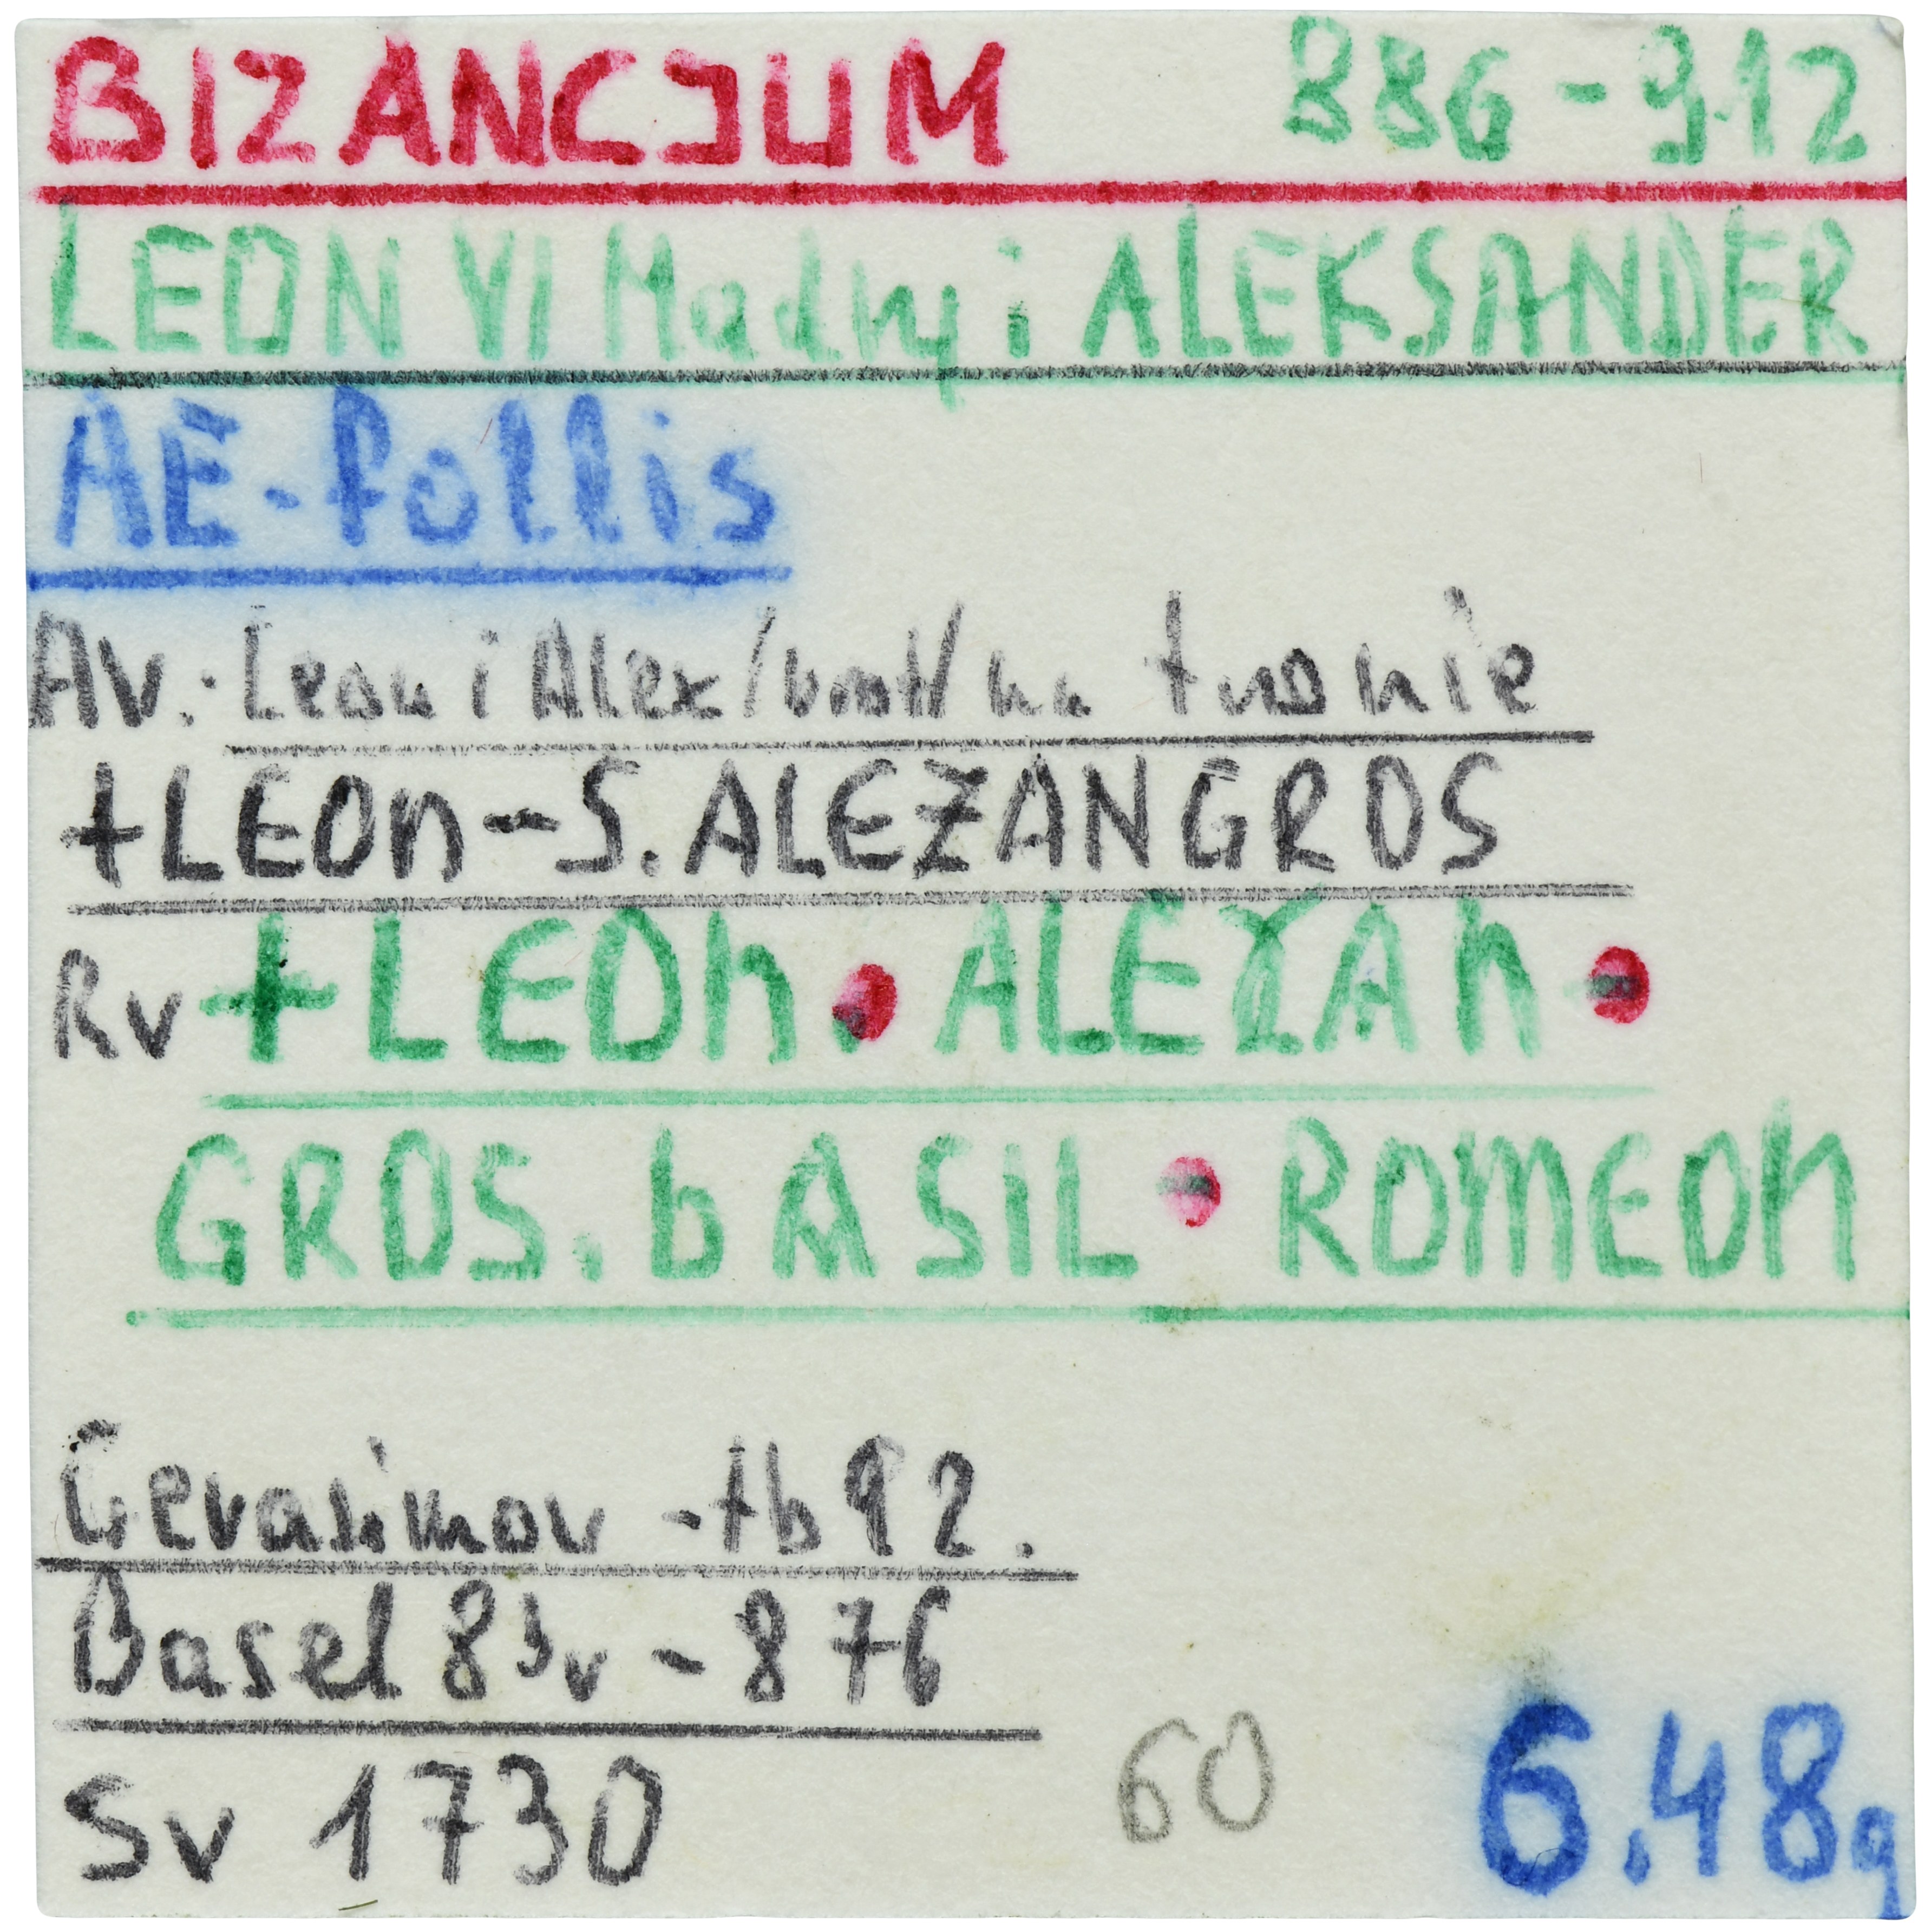 BIZANCJUM 886-912
LEON VI Mądry i ALEKSANDER
AE-follis
Av: Leon i Alex /brat/ na tronie
+LEOn-S.ALEZANGROS
Rv +LEOn • ALEXAn •
GROS. bASIL • ROMEOn
Gerasimov -tb 92.
Basel 83v - 876
Sv 1730 60 6,48g